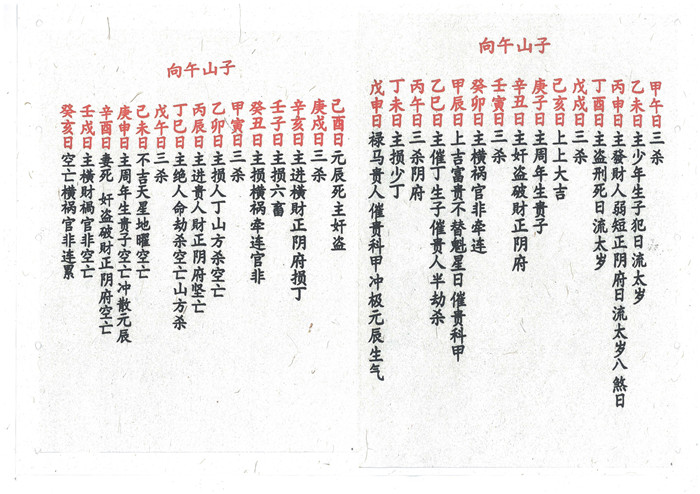 子山午向
甲午日三杀
乙未日主少年生子犯日流太岁
丙申日主發财人弱短正阴府日流太岁八煞日
丁酉日主盗刑死日流太岁
戊戌日三杀
己亥日上上大吉
庚子日主周年生贵子
辛丑日主奸盗破财正阴府
壬寅日三杀
癸卯日主横祸官非牵连
甲辰日上吉富贵不替魁星日催贵科甲
乙巳日主催丁生子催贵人半劫杀
丙午日三杀阴府
丁未日主损少丁
戊申日禄马贵人催贵科甲冲极元辰生气
子山午向
己酉日元辰死主奸盗
庚戌日三杀
辛亥日主进横财正阴府损丁
壬子日主损六畜
癸丑日主损横祸牵连官非
甲寅日三杀
乙卯日主损人丁山方杀空亡
丙辰日主进贵人财正阴府坚亡
丁巳日主绝人命劫杀空亡山方杀
戊午日三杀
己未日不吉天星地曜空亡
庚申日主周年生贵子空亡冲散元辰
辛酉日妻死 奸盗破财正阴府空亡
壬戌日主横财禍官非空亡
癸亥日空亡横祸官非连累